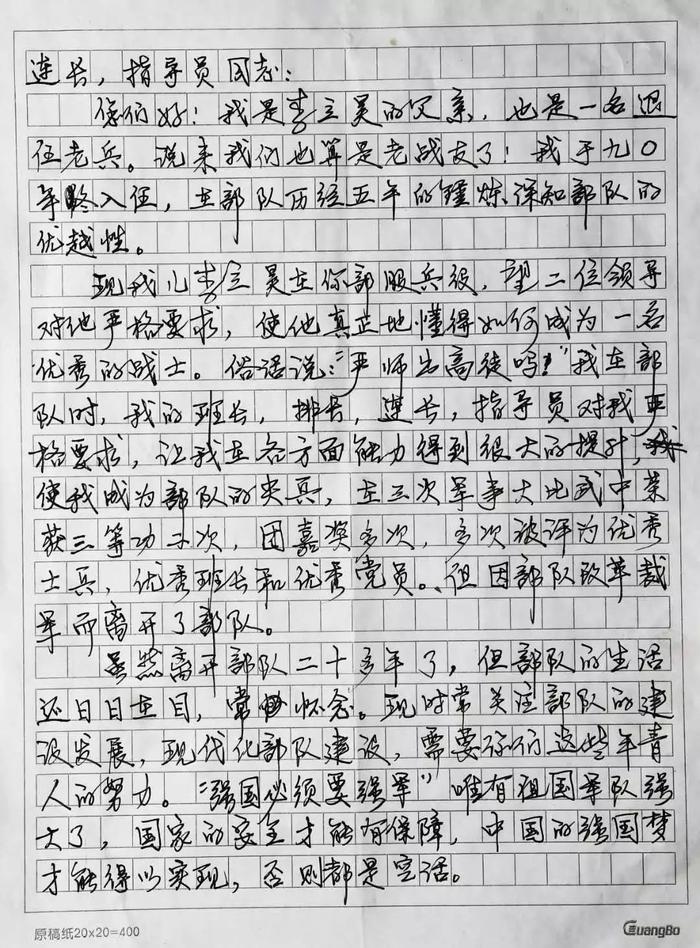 连长，指导员同志：
你们好！我是李立昊的父亲，也是一名退
伍老兵。说来我们也算是老战友了！我于九〇
年终入伍，在部队历经五年的锤炼深知部队的
优越性。
现我儿李立昊在你部服兵役，望二位领导
对他严格要求，使他真正地懂得如何成为一名
优秀的战士。俗话说：“严师出高徒吗！”我在部
队时，我的班长，排长，连长，指导员对我严
格要求，让我在各方面能力得到很大的提升，
使我成为部队的尖兵，在三次军事大比武中荣
获三等功次，团嘉奖多次，多次被评为优秀
士兵，优秀班长和优秀党员。但因部队改革裁
军而离开了部队。
虽然离开部队二十多年了，但部队的生活
还日日在目，常怀念。现时常关注部队的建
设发展，现代化部队建设，需要你们这些年青
人的努力。“强国必须要强军”唯有祖国军队强
大了，国家的安全才能有保障，中国的强国梦
才能得以实现，否则都是空话。
原稿纸20×20=400
GuangBo